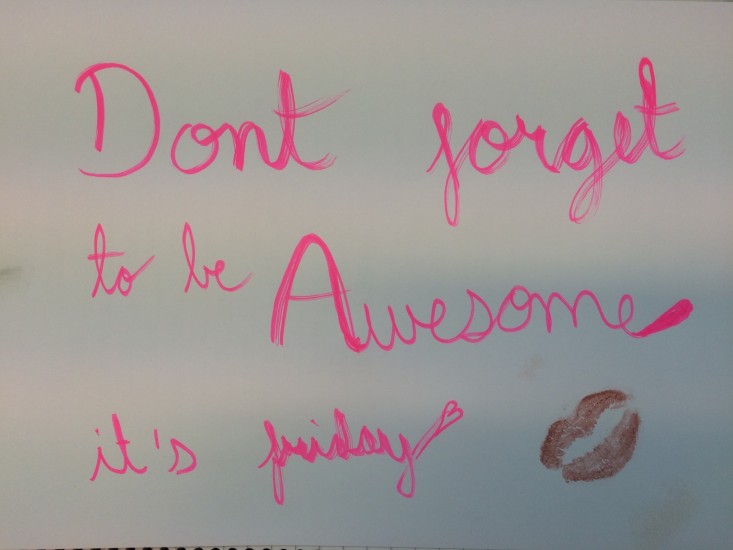 Dont forget
to be Awesome
it's friday